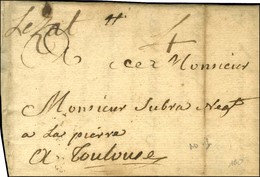 Lezat
4
A
Monsieur
Monsieur Subra Negt
a La pierre
A Toulouse